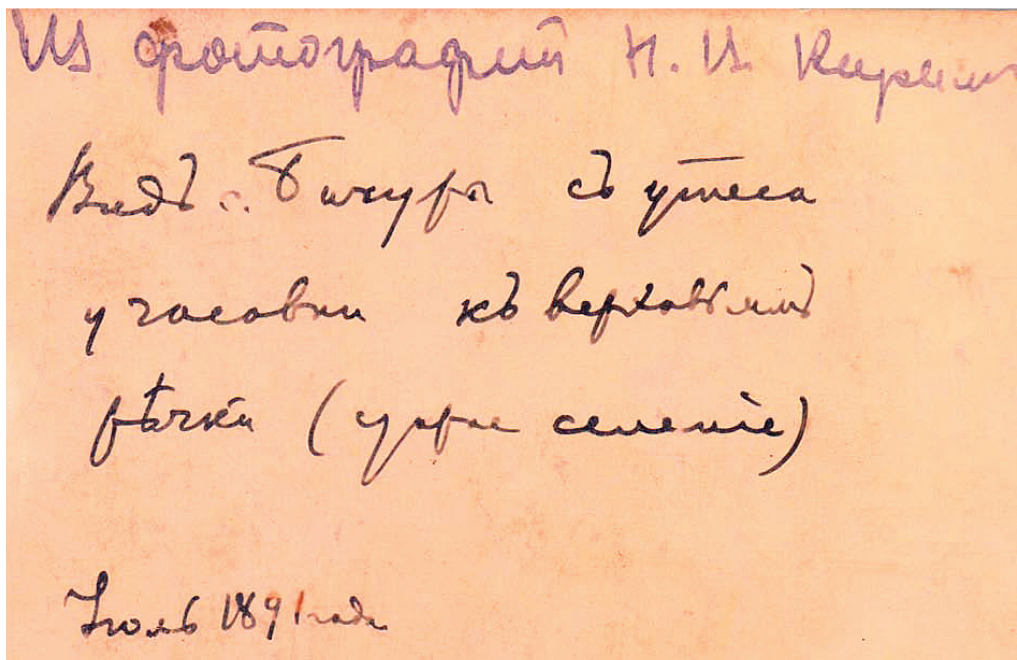 Из фотографий Н. В. Кирил
Видъ с. Бичуры съ утеса
у часовни къ верховьямъ
рѣчки (старое селеніе)
Іюль 1891 года